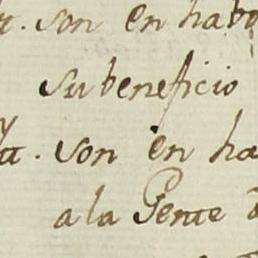 . son en habo
su beneficio
. son en ha
a la Gente